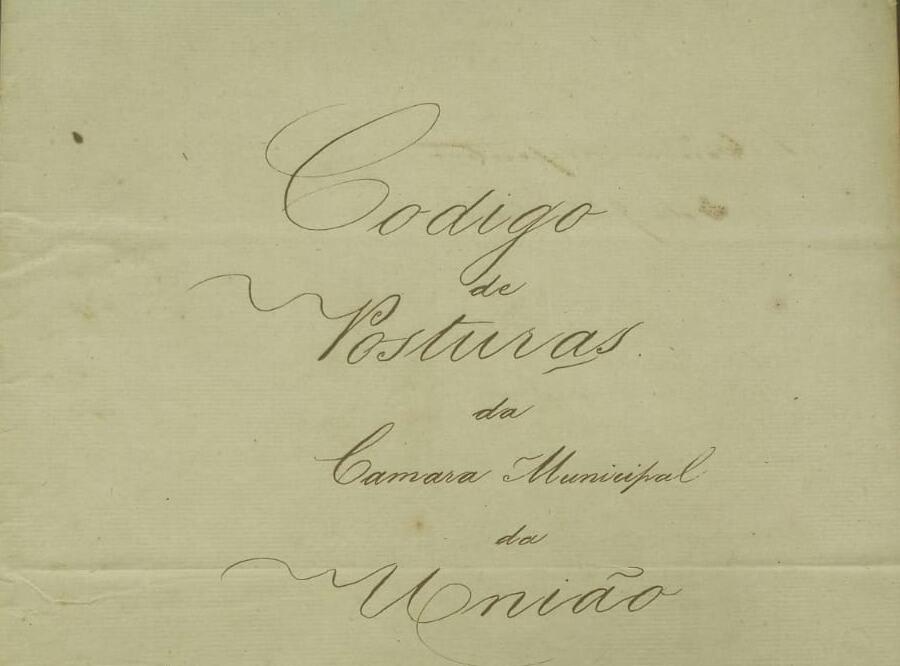 Codigo
de
Posturas.
da
Camara Municipal
da
União